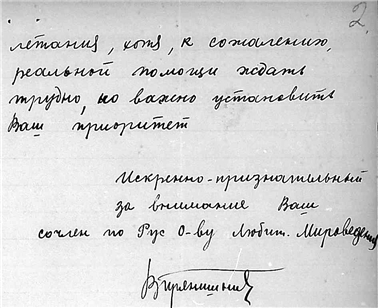 2.
летания, хотя, к сожалению,
реальной помощи ждать
трудно, но важно установить
Ваш приоритет
Искренно-признательный
за внимание Ваш
сочлен по Рус О-ву Любит. Мироведения